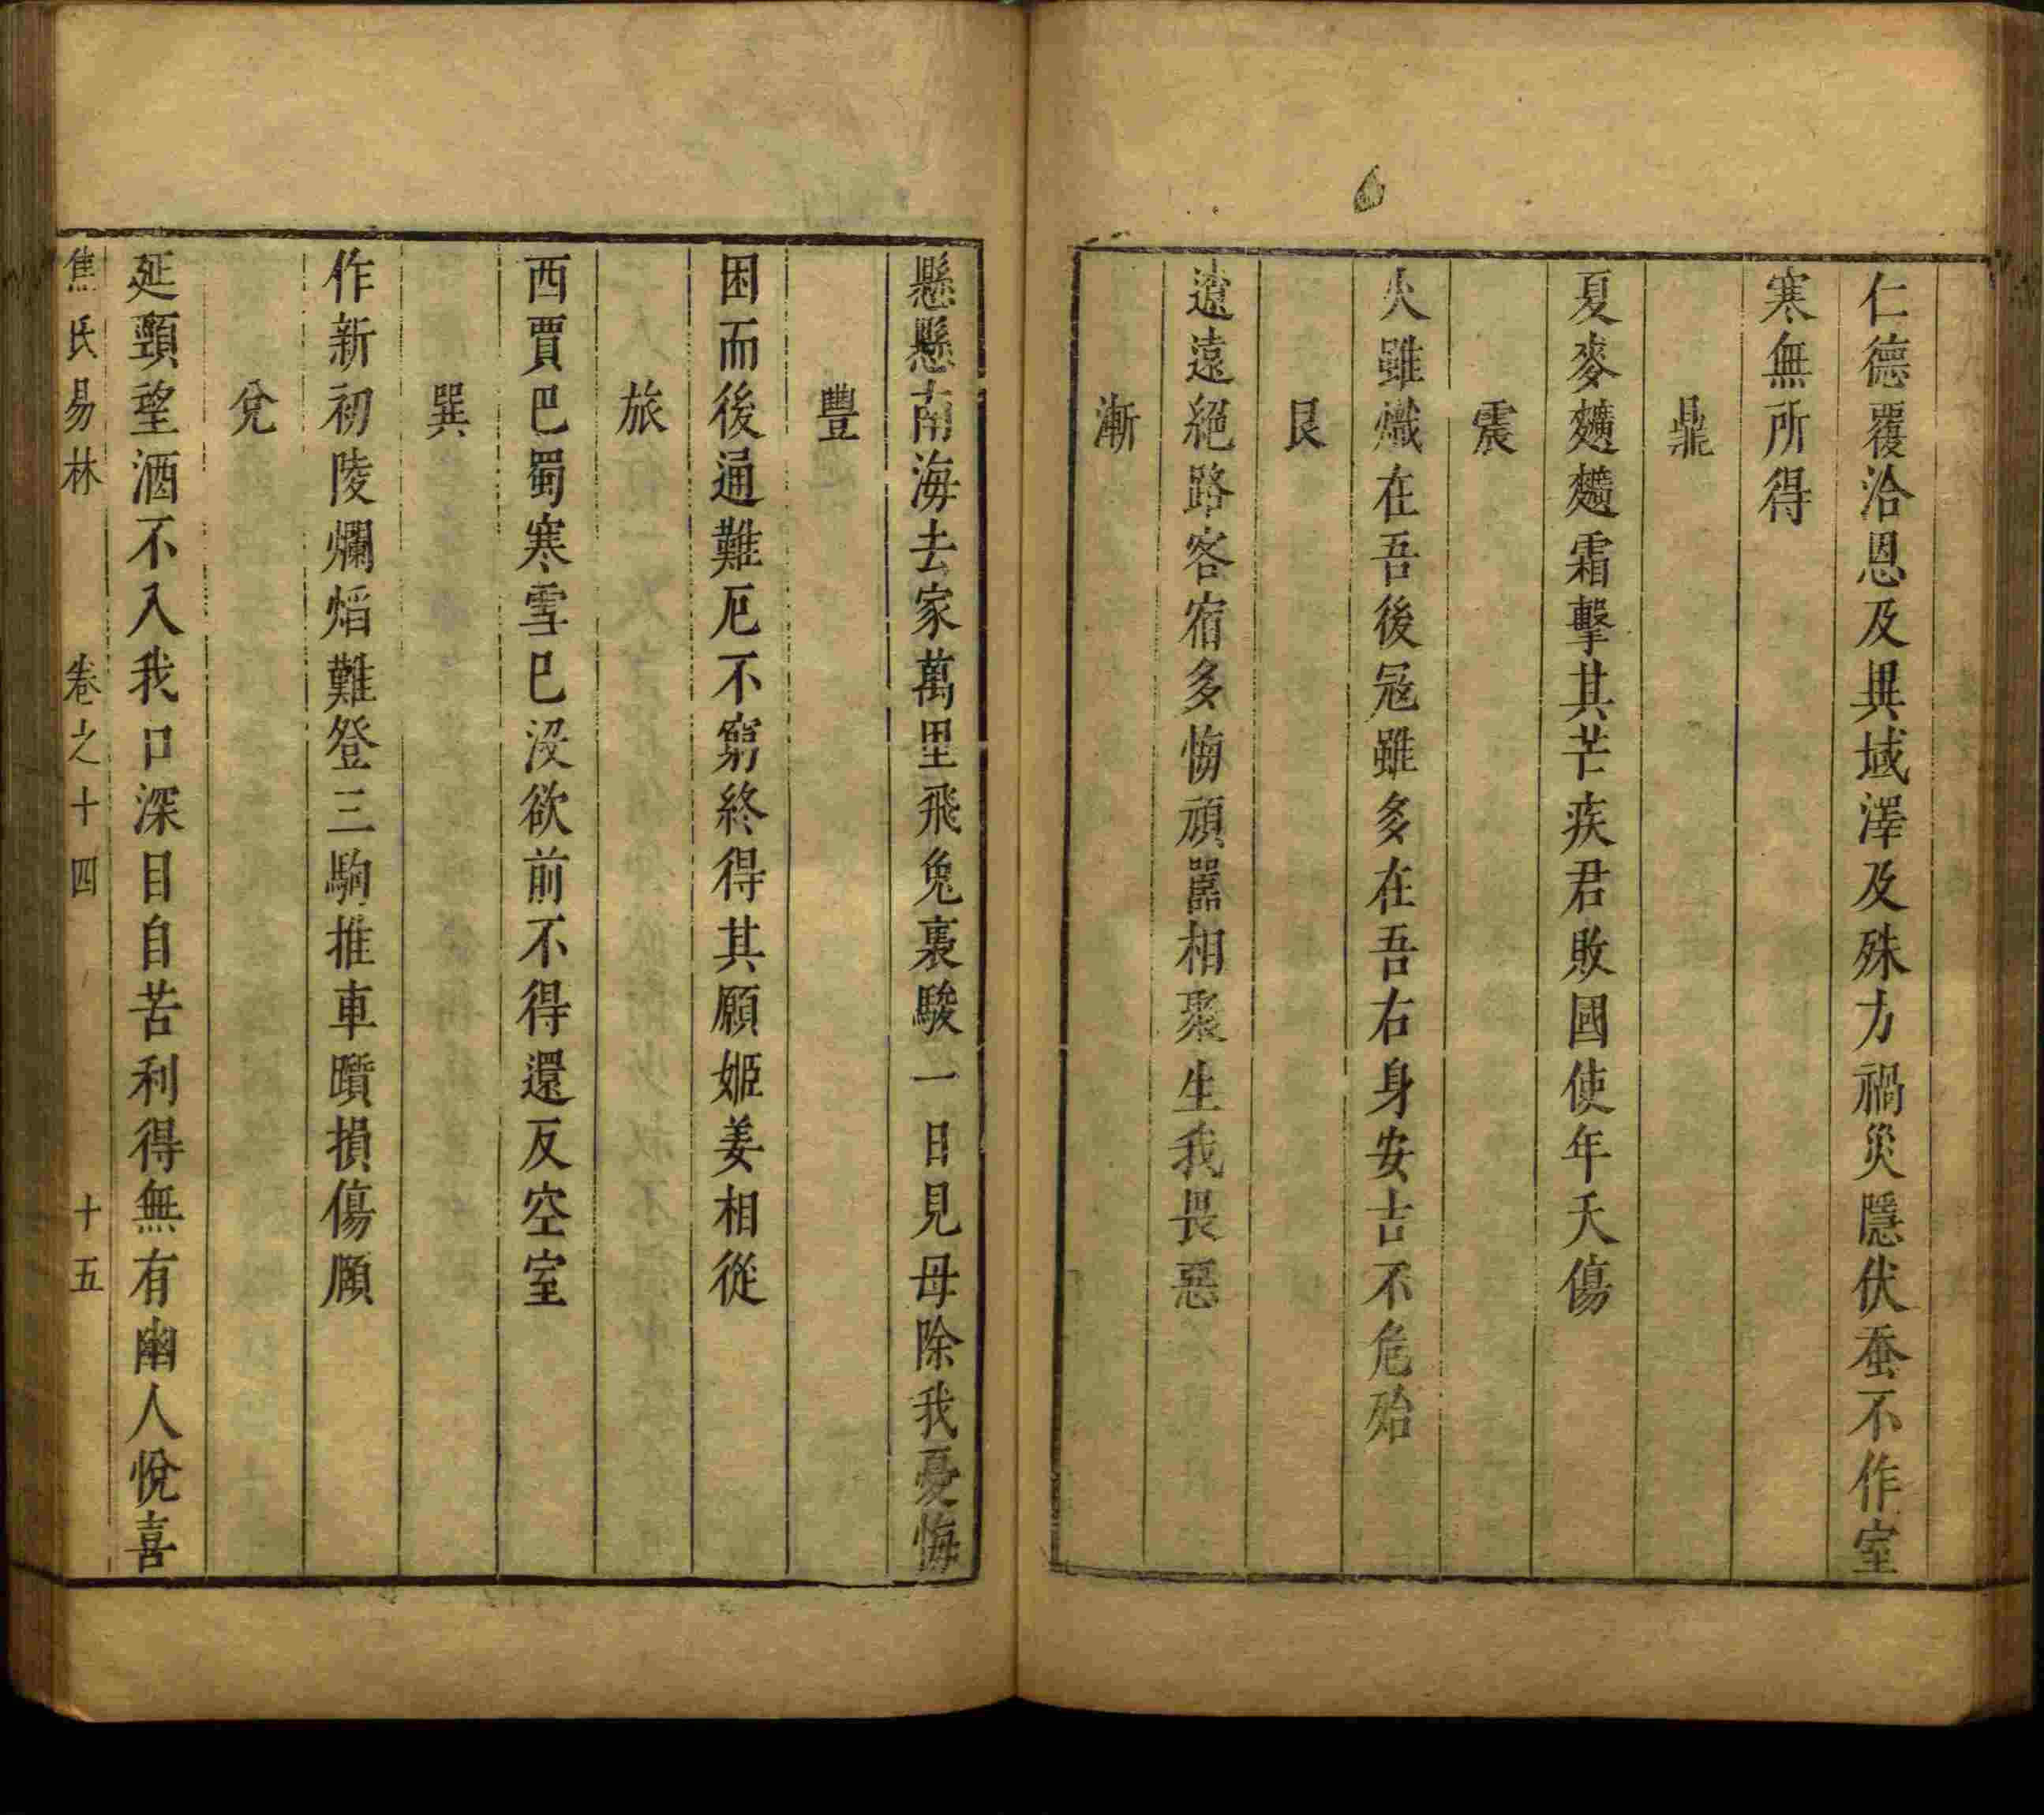 仁德覆洽恩及異域澤及殊方禍災隱伏蚕不作室
寒無所得
鼎
夏麥䴢𪍿霜擊其芒疾君敗國使年夭傷
震
火雖熾在吾後冦雖多在吾右身安吉不危殆
艮
遼遠絕路客宿多悔頑嚚相聚生我畏惡
漸
懸懸南海去家萬里飛兔裏駿一日見母除我憂悔
豐
困而後通難厄不窮終得其願姬姜相從
旅
西賈巴蜀寒雪已没欲前不得還反空室
巽
作新初陵爛熖難登三駒推車躓損傷願
兌
延頸望酒不入我口深目自苦利得無有幽人悅喜
焦氏易林 卷之十四 十五